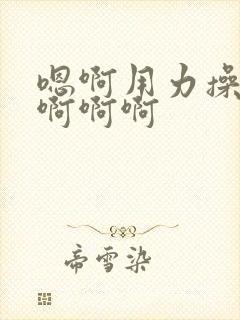 嗯啊用力操
啊啊啊
帝雪染